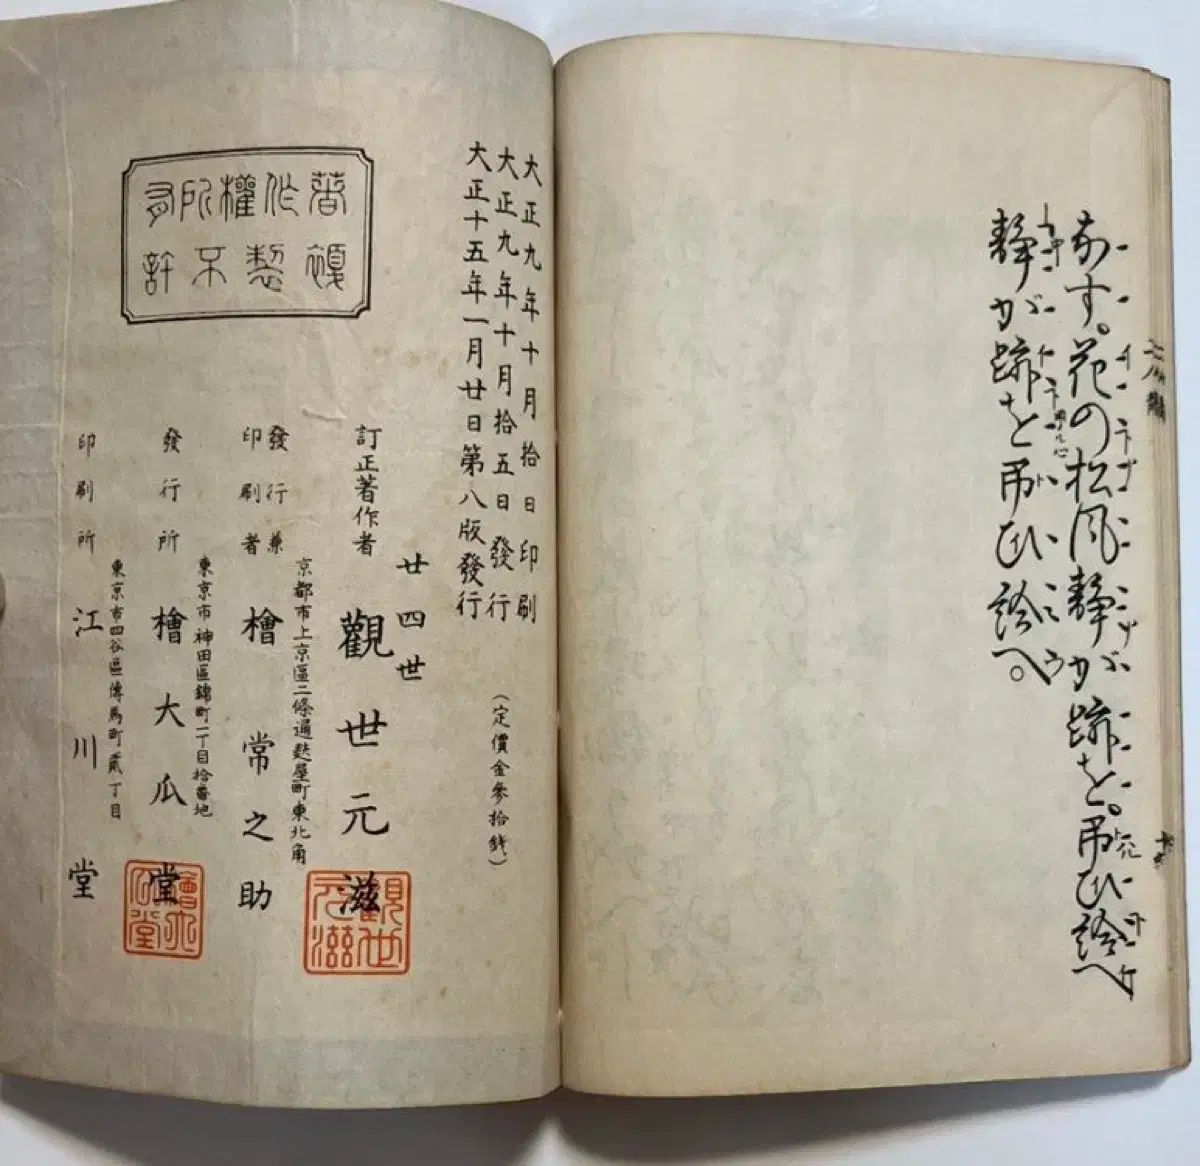 なす。花の松風静が跡を。弔ひ給へ
静が跡を弔ひ給へ。
大正九年十月拾日印刷
大正九年十月拾五日發行
大正十五年一月廿日第八版發行
(定價金參拾錢)
著作權所有
複製不許
訂正著作者
廿四世
觀世元滋
京都市上京區二條通麩屋町東北角
發行兼
印刷者
檜常之助
東京市神田區錦町一丁目拾番地
發行所
檜大瓜堂
東京市四谷區傳馬町貳丁目
印刷所
江川堂
觀世
元滋
檜大
瓜堂